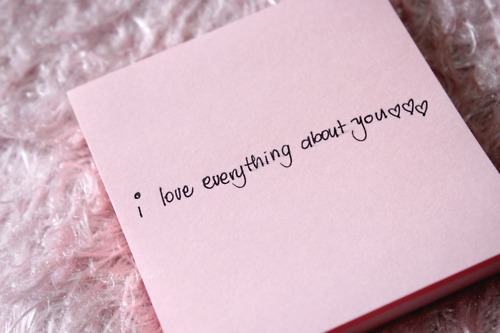 i love everything about you♡♡♡